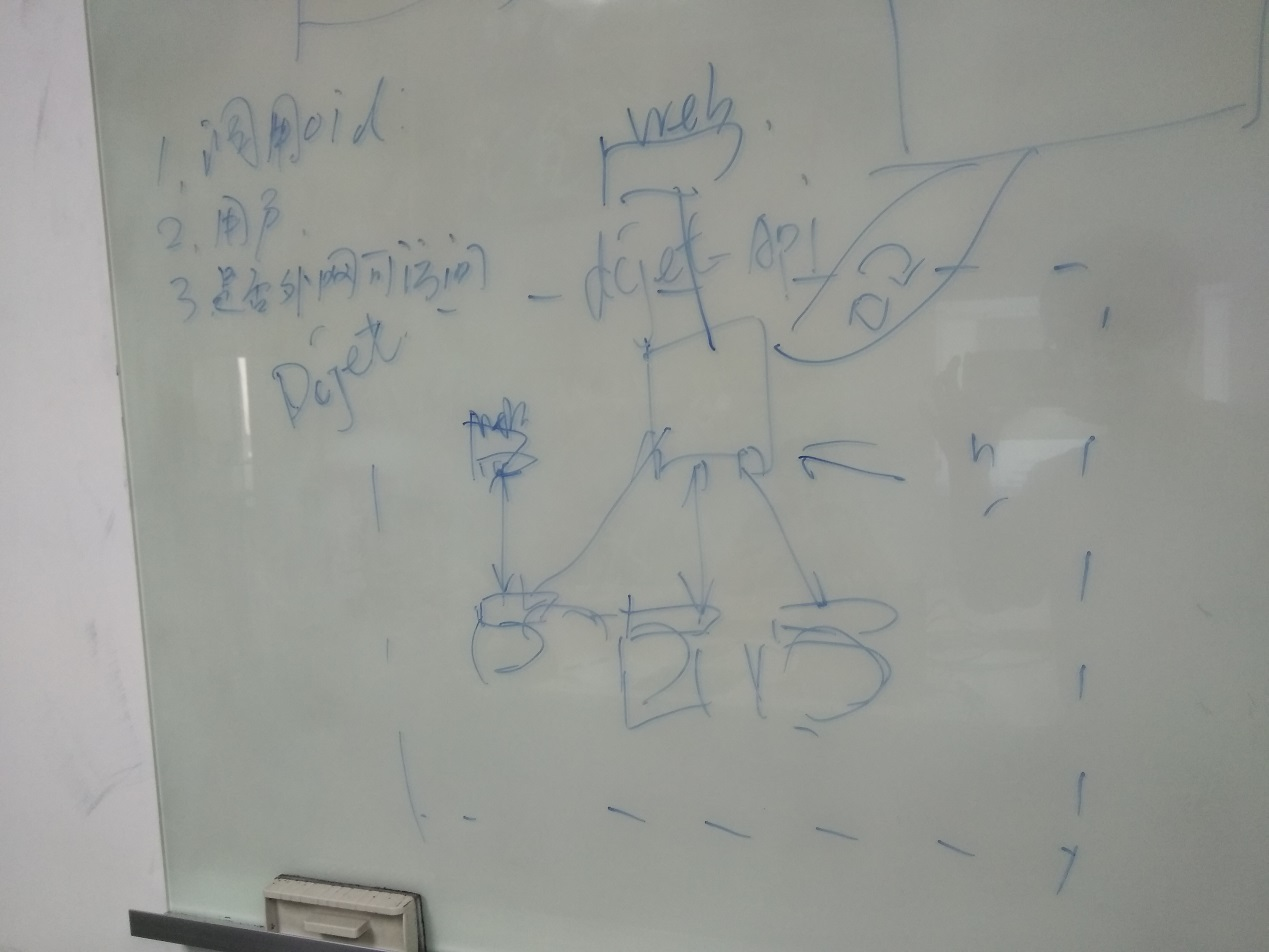 1. 调用oid.
2. 用户.
3. 是否外网可访问
Dojet.
web
dojet-API
web
n